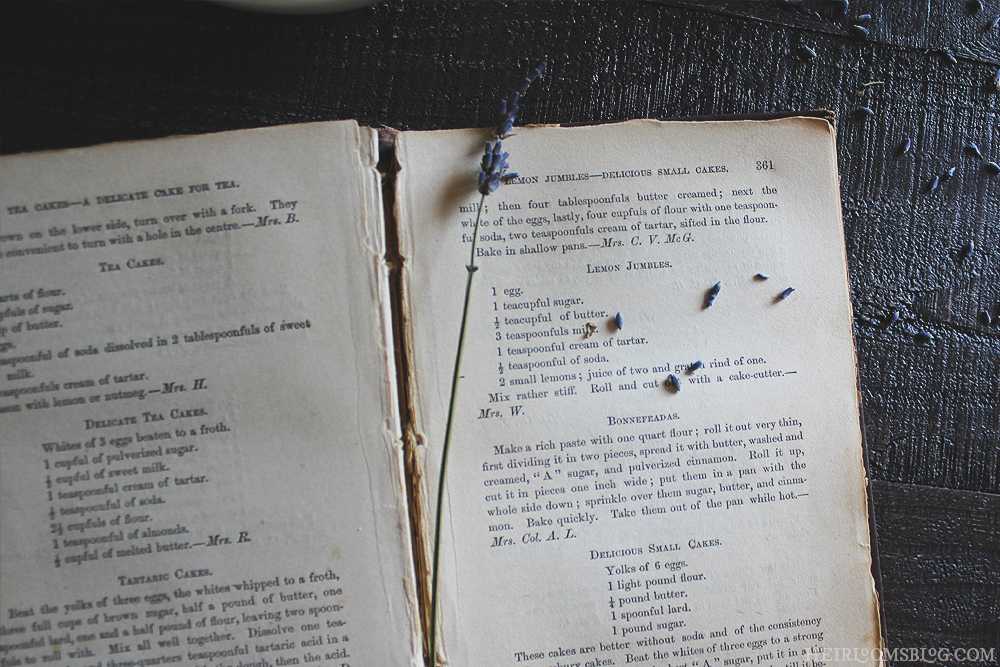 TEA CAKES—A DELICATE CAKE FOR TEA.
own on the lower side, turn over with a fork. They
convenient to turn with a hole in the centre.—Mrs. B.
TEA CAKES.
arts of flour.
pfuls of sugar.
p of butter.
easpoonful of soda dissolved in 2 tablespoonfuls of sweet
milk.
easpoonfuls cream of tartar.
son with lemon or nutmeg.—Mrs. H.
DELICATE TEA CAKES.
Whites of 3 eggs beaten to a froth.
1 cupful of pulverized sugar.
½ cupful of sweet milk.
1 teaspoonful cream of tartar.
½ teaspoonful of soda.
2½ cupfuls of flour.
1 teaspoonful of almonds.
½ cupful of melted butter.—Mrs. R.
TARTARIC CAKES.
Beat the yolks of three eggs, the whites whipped to a froth,
three full cups of brown sugar, half a pound of butter, one
spoonful lard, one and a half pound of flour, leaving two spoon-
fuls to roll with. Mix all well together. Dissolve one tea-
and three-quarters teaspoonful tartaric acid in a
the dough, then the acid.
LEMON JUMBLES—DELICIOUS SMALL CAKES. 361
milk; then four tablespoonfuls butter creamed; next the
white of the eggs, lastly, four cupfuls of flour with one teaspoon-
ful soda, two teaspoonfuls cream of tartar, sifted in the flour.
Bake in shallow pans.—Mrs. C. V. McG.
LEMON JUMBLES.
1 egg.
1 teacupful sugar.
½ teacupful of butter.
3 teaspoonfuls milk.
1 teaspoonful cream of tartar.
½ teaspoonful of soda.
2 small lemons; juice of two and grated rind of one.
Mix rather stiff. Roll and cut with a cake-cutter.—
Mrs. W.
BONNEFEADAS.
Make a rich paste with one quart flour; roll it out very thin,
first dividing it in two pieces, spread it with butter, washed and
creamed, "A" sugar, and pulverized cinnamon. Roll it up,
cut it in pieces one inch wide; put them in a pan with the
whole side down; sprinkle over them sugar, butter, and cinna-
mon. Bake quickly. Take them out of the pan while hot.—
Mrs. Col. A. L.
DELICIOUS SMALL CAKES.
Yolks of 6 eggs.
1 light pound flour.
¼ pound butter.
1 spoonful lard.
1 pound sugar.
These cakes are better without soda and of the consistency
cakes. Beat the whites of three eggs to a strong
"A" sugar, put it in a
HEIRLOOMSBLOG.COM